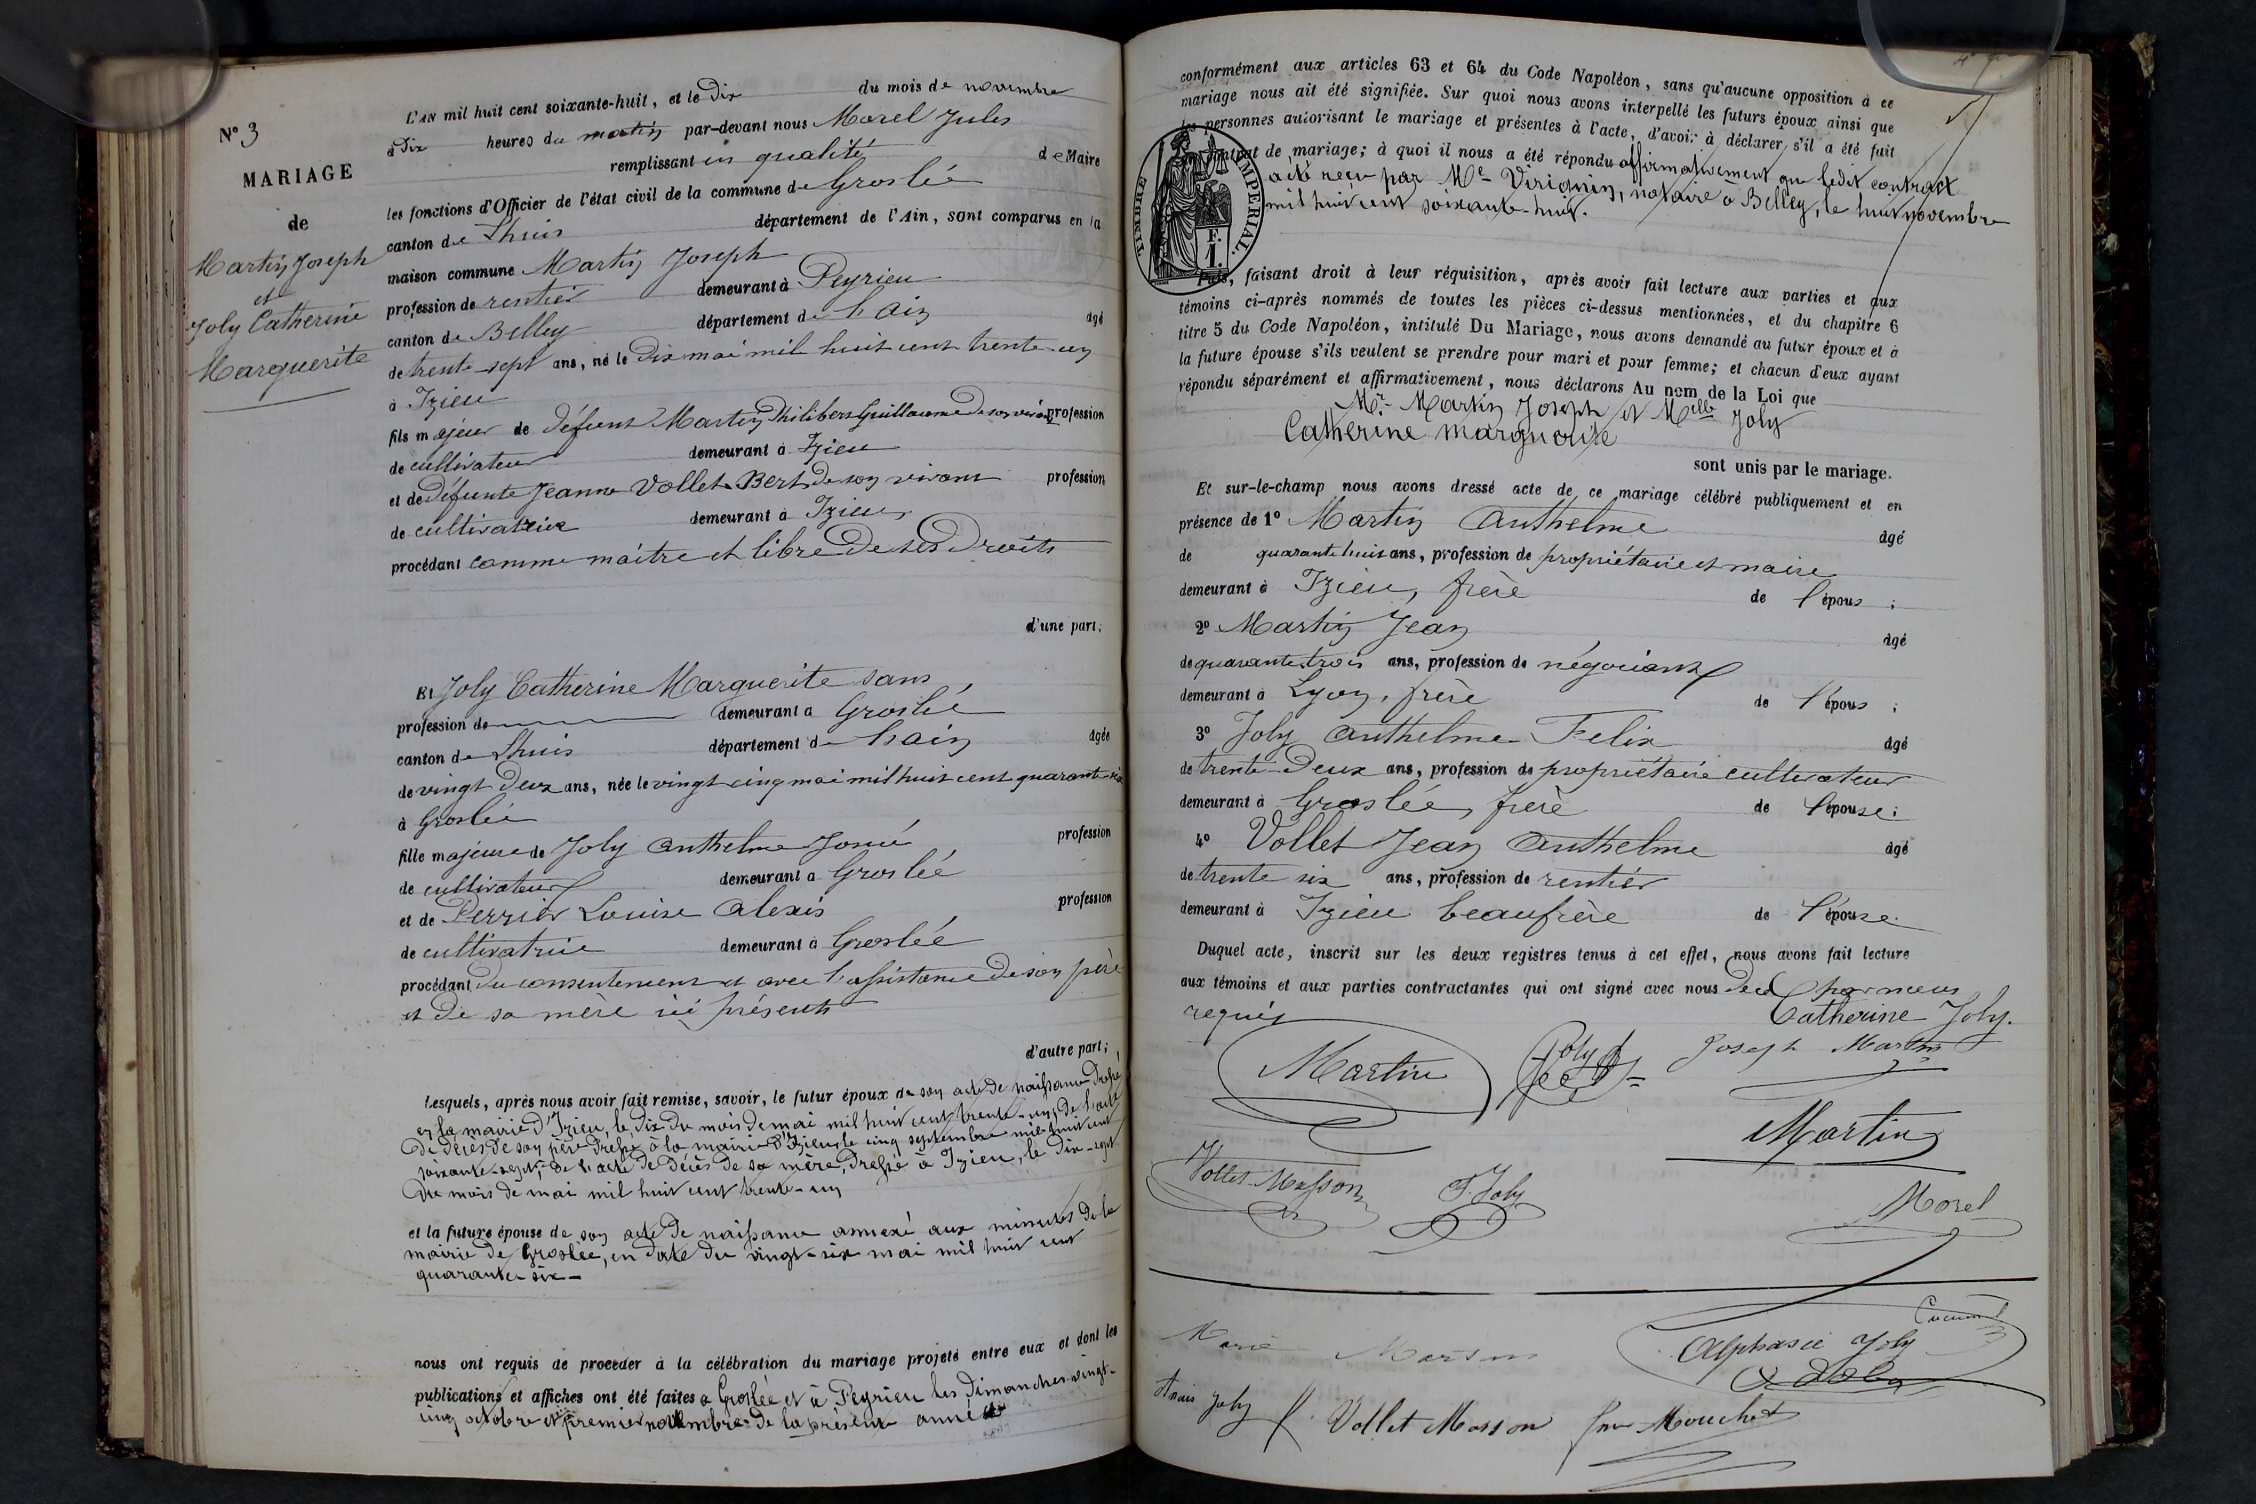 N° 3
MARIAGE
de
Martin Joseph
et
Joly Catherine
Marguerite
L'AN mil huit cent soixante-huit, et le Dix du mois de novembre
à Dix heures du matin par-devant nous Morel Jules
remplissant en qualité de Maire
les fonctions d'Officier de l'état civil de la commune de Groslée
canton de Lhuis département de l'Ain, sont comparus en la
maison commune Martin Joseph
profession de rentier demeurant à Peyrieu
canton de Belley département de l'ain âgé
de trente-sept ans, né le Dix mai mil huit cent trente-un
à Izieu
fils majeur de défunt Martin Philibert Guillaume de son vivant profession
de cultivateur demeurant à Izieu
et de défunte Jeanne Vollet-Bert de son vivant profession
de cultivatrice demeurant à Izieu,
procédant comme maître et libre de ses Droits
d'une part;
Et Joly Catherine Marguerite sans
profession de demeurant à Groslée
canton de Lhuis département de l'ain âgée
de vingt Deux ans, née le vingt-cinq mai mil huit cent quarante-six
à Groslée
fille majeure de Joly Anthelme Josué profession
de cultivateur demeurant à Groslée
et de Perrier Louise Alexis profession
de cultivatrice demeurant à Groslée
procédant du consentement et avec l'assistance de son père
et de sa mère ici présents
d'autre part;
Lesquels, après nous avoir fait remise, savoir, le futur époux de son acte de naissance dressé
en la mairie d'Izieu, le dix du mois de mai mil huit cent trente-un, de l'acte
de décès de son père dressé à la mairie d'Izieu le cinq septembre mil huit cent
soixante-sept, de l'acte de décès de sa mère, dressé à Izieu, le dix-sept
du mois de mai mil huit cent trente-un
et la future épouse de son acte de naissance annexé aux minutes de la
mairie de Groslée, en date du vingt-six mai mil huit cent
quarante-six-
nous ont requis de procéder à la célébration du mariage projeté entre eux et dont les
publications et affiches ont été faites à Groslée et à Peyrieu les dimanches vingt-
cinq octobre et premier novembre de la présente année
conformément aux articles 63 et 64 du Code Napoléon, sans qu'aucune opposition à ce
mariage nous ait été signifiée. Sur quoi nous avons interpellé les futurs époux ainsi que
les personnes autorisant le mariage et présentes à l'acte, d'avoir à déclarer s'il a été fait
contrat de mariage; à quoi il nous a été répondu affirmativement que ledit contrat
a été reçu par Me Virignin, notaire à Belley, le huit novembre
mil huit cent soixante-huit.
TIMBRE IMPERIAL.
F.
1.
Puis, faisant droit à leur réquisition, après avoir fait lecture aux parties et aux
témoins ci-après nommés de toutes les pièces ci-dessus mentionnées, et du chapitre 6
titre 5 du Code Napoléon, intitulé Du Mariage, nous avons demandé au futur époux et à
la future épouse s'ils veulent se prendre pour mari et pour femme; et chacun d'eux ayant
répondu séparément et affirmativement, nous déclarons Au nom de la Loi que
Mr. Martin Joseph et Melle Joly
Catherine marguerite
sont unis par le mariage.
Et sur-le-champ nous avons dressé acte de ce mariage célébré publiquement et en
présence de 1° Martin Anthelme âgé
de quarante huit ans, profession de propriétaire et maire
demeurant à Izieu, frère de l'époux ;
2° Martin Jean âgé
de quarante trois ans, profession de négociant
demeurant à Lyon, frère de l'époux ;
3° Joly Anthelme Felix âgé
de trente-Deux ans, profession de propriétaire cultivateur
demeurant à Groslée, frère de l'épouse;
4° Vollet Jean Anthelme âgé
de trente six ans, profession de rentier
demeurant à Izieu beaufrère de l'épouse.
Duquel acte, inscrit sur les deux registres tenus à cet effet, nous avons fait lecture
aux témoins et aux parties contractantes qui ont signé avec nous de ce
requis
Catherine Joly.
Martin Joly Joseph Martin
Martin
Vollet-Masson F. Joly
Morel
Marie Masson Alphasie Joly
Anais Joly Vollet Masson Mouchet